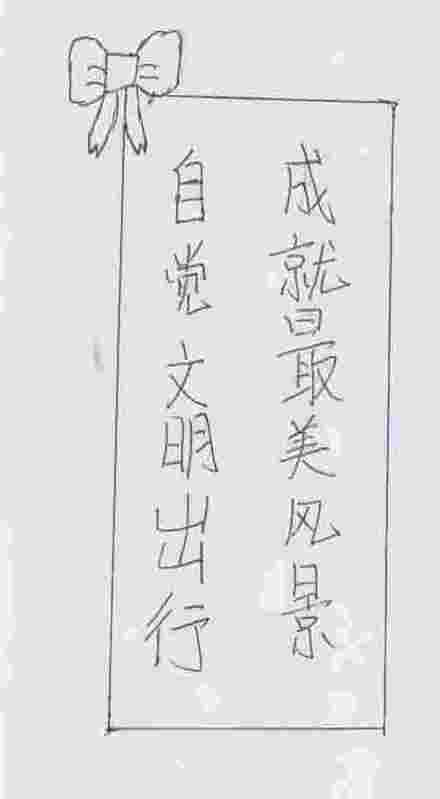 自觉文明出行
成就最美风景